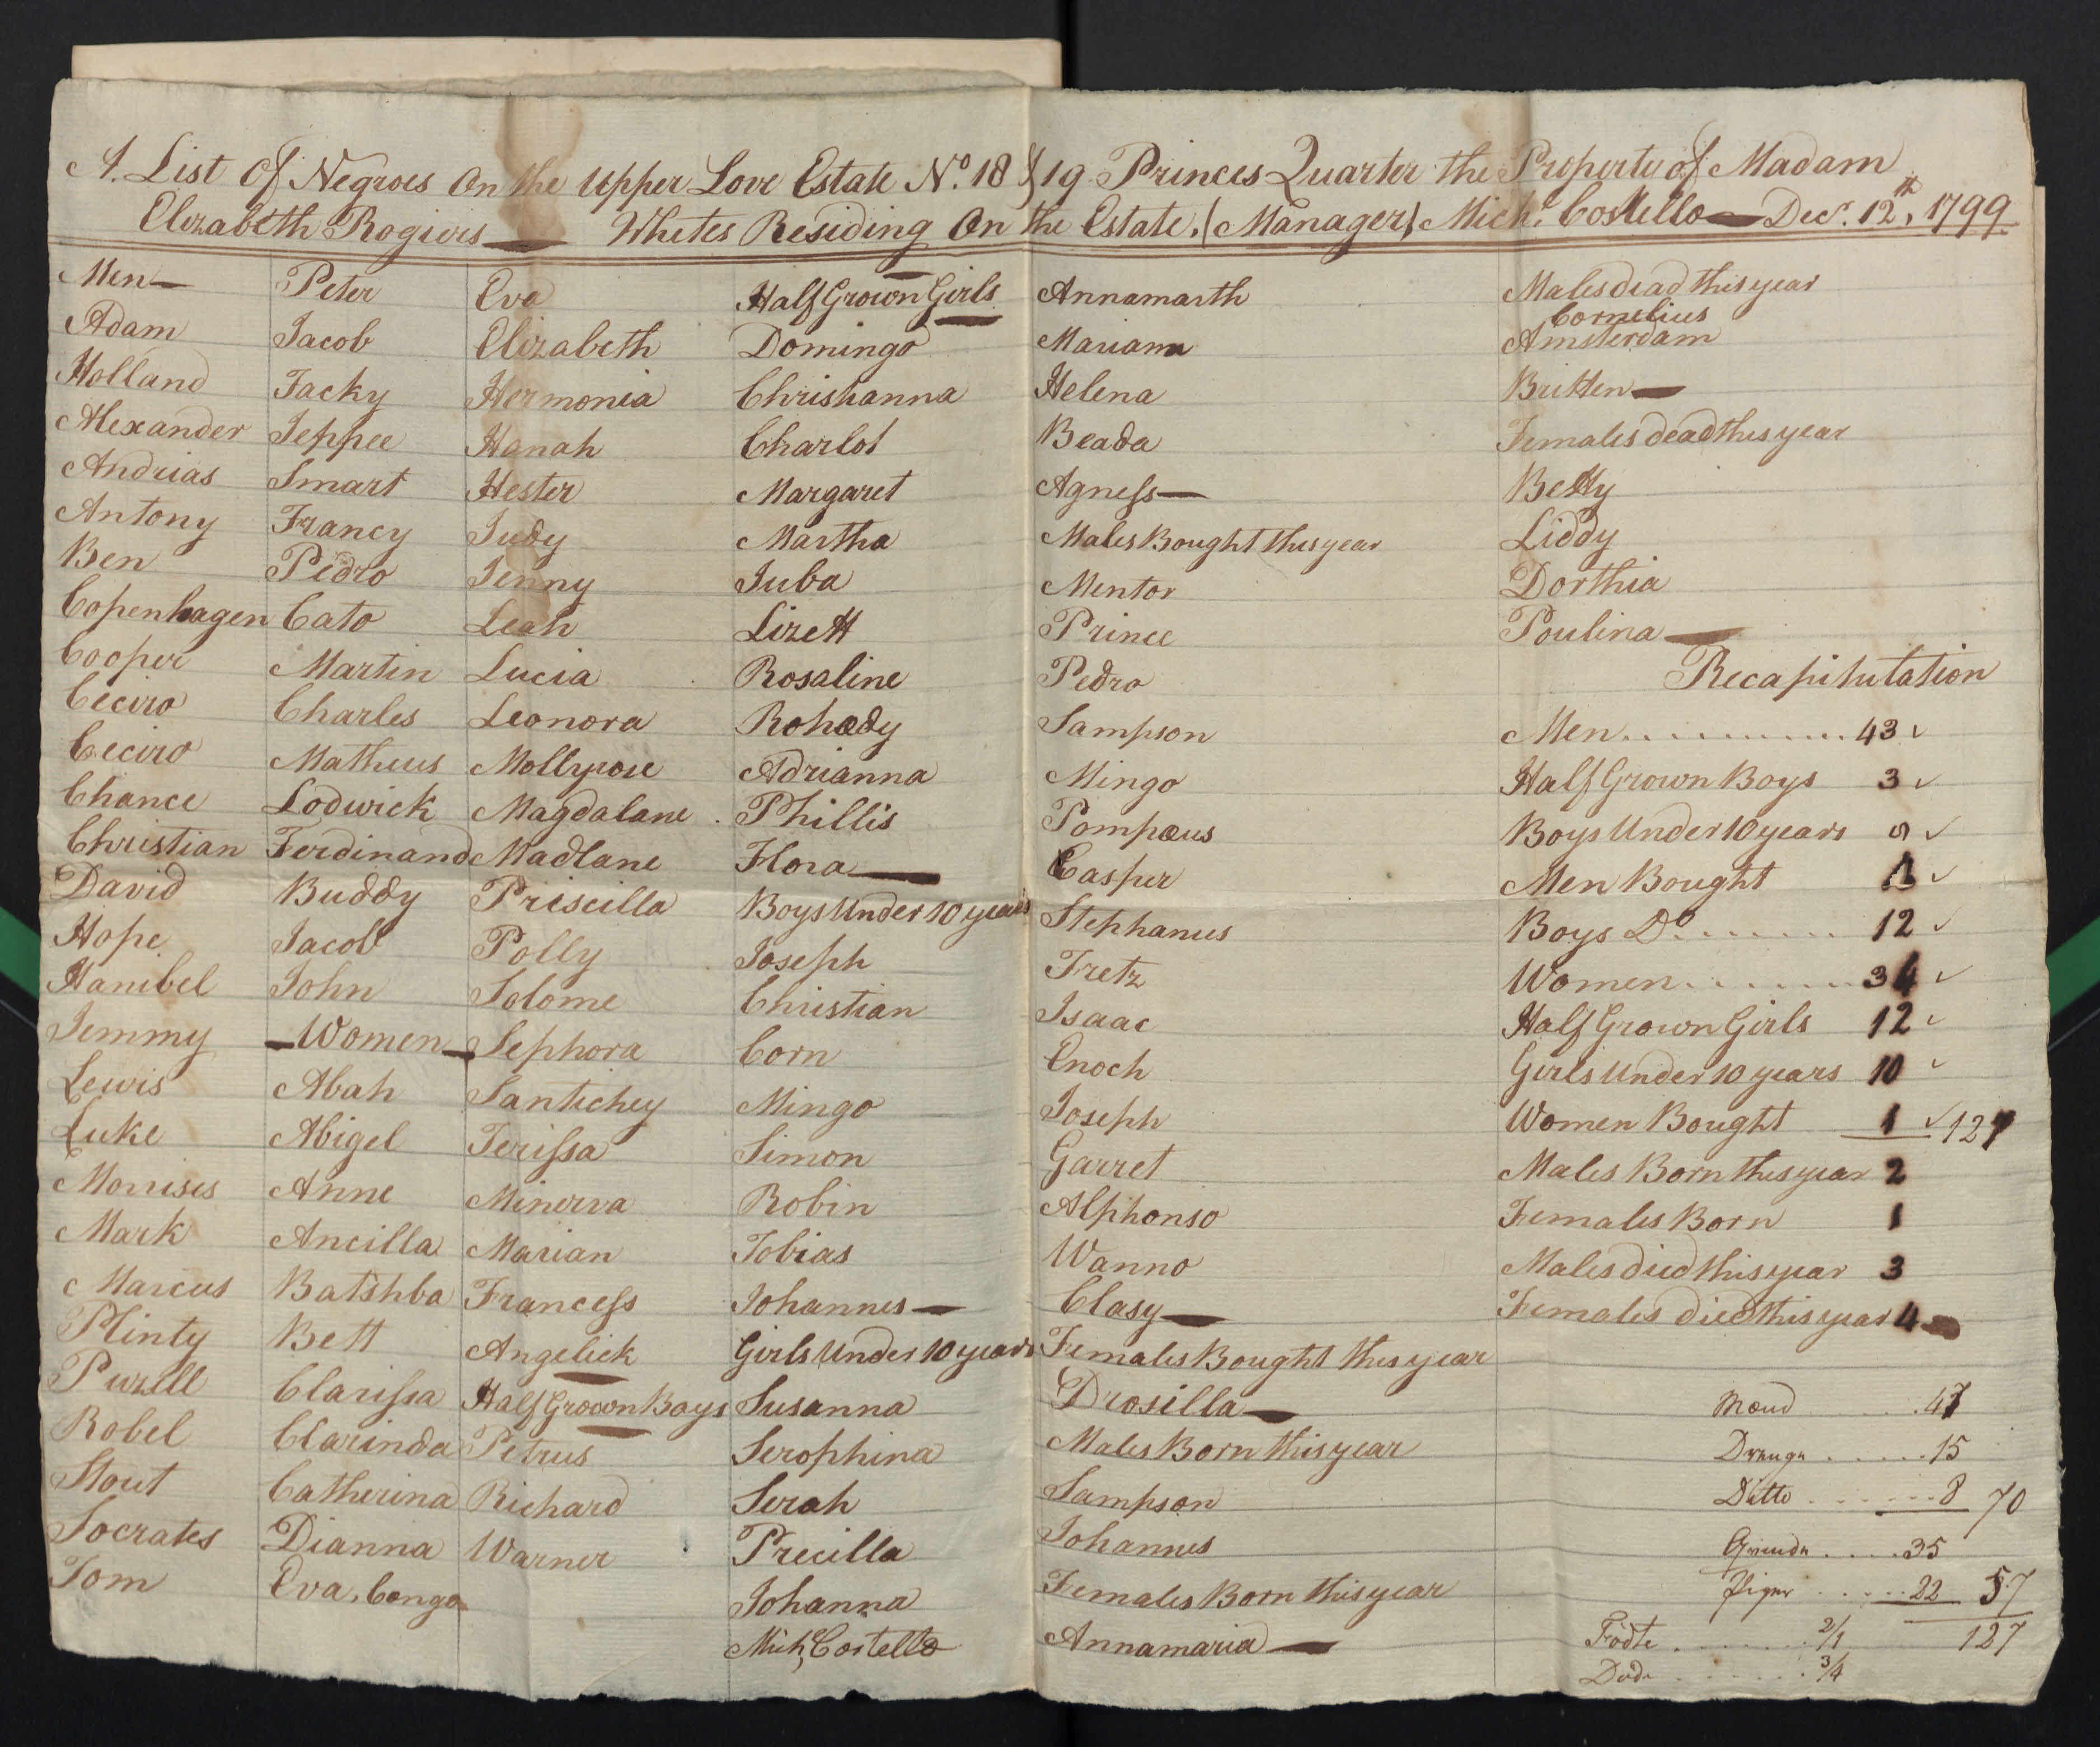 A. List Of Negroes On the Upper Love Estate No. 18 & 19 Princes Quarter the Property of Madam
Elizabeth Rogiers Whites Residing On the Estate. (Manager) Michl. Costello Decr. 12th, 1799
Men
Adam
Holland
Alexander
Andrias
Antony
Ben
Copenhagen
Cooper
Ceciro
Ceciro
Chance
Christian
David
Hope
Hanibel
Jemmy
Lewis
Luke
Morrises
Mark
Marcus
Plinty
Puzell
Robel
Stout
Socrates
Tom
Peter
Jacob
Jacky
Jeppee
Smart
Francy
Pedro
Cato
Martin
Charles
Matheus
Lodwick
Ferdinand
Buddy
Jacob
John
Women
Abah
Abigel
Anne
Ancilla
Batshba
Bett
Clarissa
Clarinda
Catherina
Dianna
Eva, Congo
Eva
Elizabeth
Hermonia
Hanah
Hester
Judy
Jenny
Leah
Lucia
Leonora
Mollyrose
Magdalane
Madlane
Priscilla
Polly
Solome
Sephora
Santichey
Terissa
Minerva
Marian
Francess
Angelick
Half Grown Boys
Petrus
Richard
Warner
Half Grown Girls
Domingo
Christianna
Charlot
Margaret
Martha
Juba
Lizett
Rosaline
Rohady
Adrianna
Phillis
Flora
Boys Under 10 years
Joseph
Christian
Corn
Mingo
Simon
Robin
Tobias
Johannes
Girls Under 10 years
Susanna
Serophina
Serah
Precilla
Johanna
Michl, Costello
Annamarth
Mariann
Helena
Beada
Agness
Males Bought this year
Mentor
Prince
Pedro
Sampson
Mingo
Pompæus
Casper
Stephanus
Fretz
Isaac
Enoch
Joseph
Garret
Alphonso
Wanno
Clasy
Females Bought this year
Drosilla
Males Born this year
Sampson
Johannes
Females Born this year
Annamaria
Males dead this year
Cornelius
Amsterdam
Britten
Females dead this year
Betty
Liddy
Dorthia
Poulina
Recapitulation
Men 43
Half Grown Boys 3
Boys Under 10 years 8
Men Bought 4
Boys Do. 12
Women 34
Half Grown Girls 12
Girls Under 10 years 10
Women Bought 1 127
Males Born this year 2
Females Born 1
Males died this year 3
Females died this year 4
Mænd 47
Drenge 15
Ditto 8 70
Qvinde 35
Piger 22 57
127
Födte 2/1
Døde 3/4